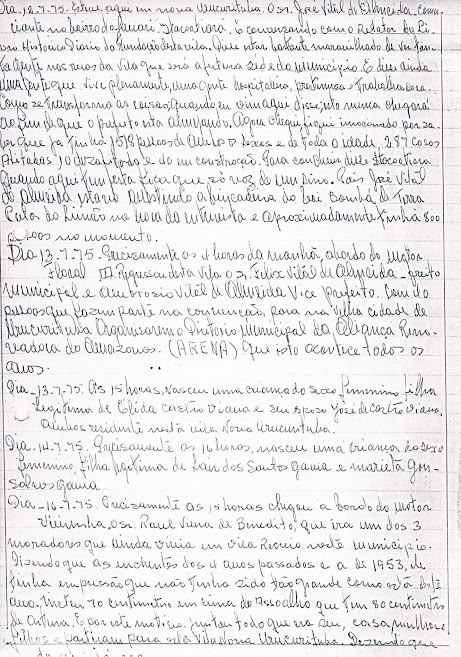 Dia, 12.7.75. Esteve aqui em nova Urucurituba. O sr. José Vital de Almeida, comer
ciante no beiro do Jauari. Itacoatiara. E começando com o Relator do Li
vro Historico Diario do Fundação desta vila. Que estar bastante maravilhado de ver tan
ta gente nas ruas da Vila que será a futura sede do municipio. E disse ainda
uma gente que vive plenamente, uma gente hospitaleira, prestimosa e trabalhadora.
Como se transforma as coisas, quando eu vim aqui disse isto nunca chegará
ao fim do que o prefeito esta almejando. Agora cheguei fiquei imocionado por sa
ber que ja tinha 1518 pessoas de ambos os sexos e de toda a idade, 287 casas
abitadas 10 dezabitado e do em construção. Para concluir delle Itacoatiara
Quando aqui tem festa fica que só voz de um sino. Pois José Vital
de Almeida estava assistindo a brincadeira do boi bomba de Terra
Preta do Limão na hora da intervista e aproximadamente tinha 800
pessoas no momento.
Dia 13.7.75. Precisamente as 4 horas da manhã, abordo do motor
Floral III. Regressou desta Vila o sr. Felix Vital de Almeida, prefeito
municipal e Ambrosio Vital de Almeida Vice prefeito. Com 40
pessoas que fazem parte na convenção, para na Velha cidade de
Urucurituba Organizarem o Diretorio municipal da Aliança Reno-
vadora do Amazonas. (ARENA) que isto acontece todos os
anos.
Dia_13.7.75. As 15 horas, nasceu uma criança do sexo femenino, filha
legitima de Elida Castro Viana e seu sposo José de Castro Viana.
Ambos residente nesta vila Nova Urucurituba.
Dia_14.7.75. Precisamente as 16 horas, nasceu uma criança do sexo
femenino, filha legitima de dos Santos Gama e marieta Gon-
salves Gama
Dia_16.7.75. Precizamente as 15 horas chegou a bordo do motor
o sr. Raul Viena de Benedito, que era um dos 3
moradores que ainda vivia em Vila Recreio neste municipio.
Dizendo que as enchentes dos 4 anos passados e a de 1953, ele
tinha empressão que não tinha sido tão grande como esta deste
ano. meteu 70 centimetro em cima do assoalho que tem 80 centimetros
de altura. E por este motivo. juntou todo que no seu, casa, mulher e
filhos e partiram para esta Vila Nova Urucurituba. Dizendo que